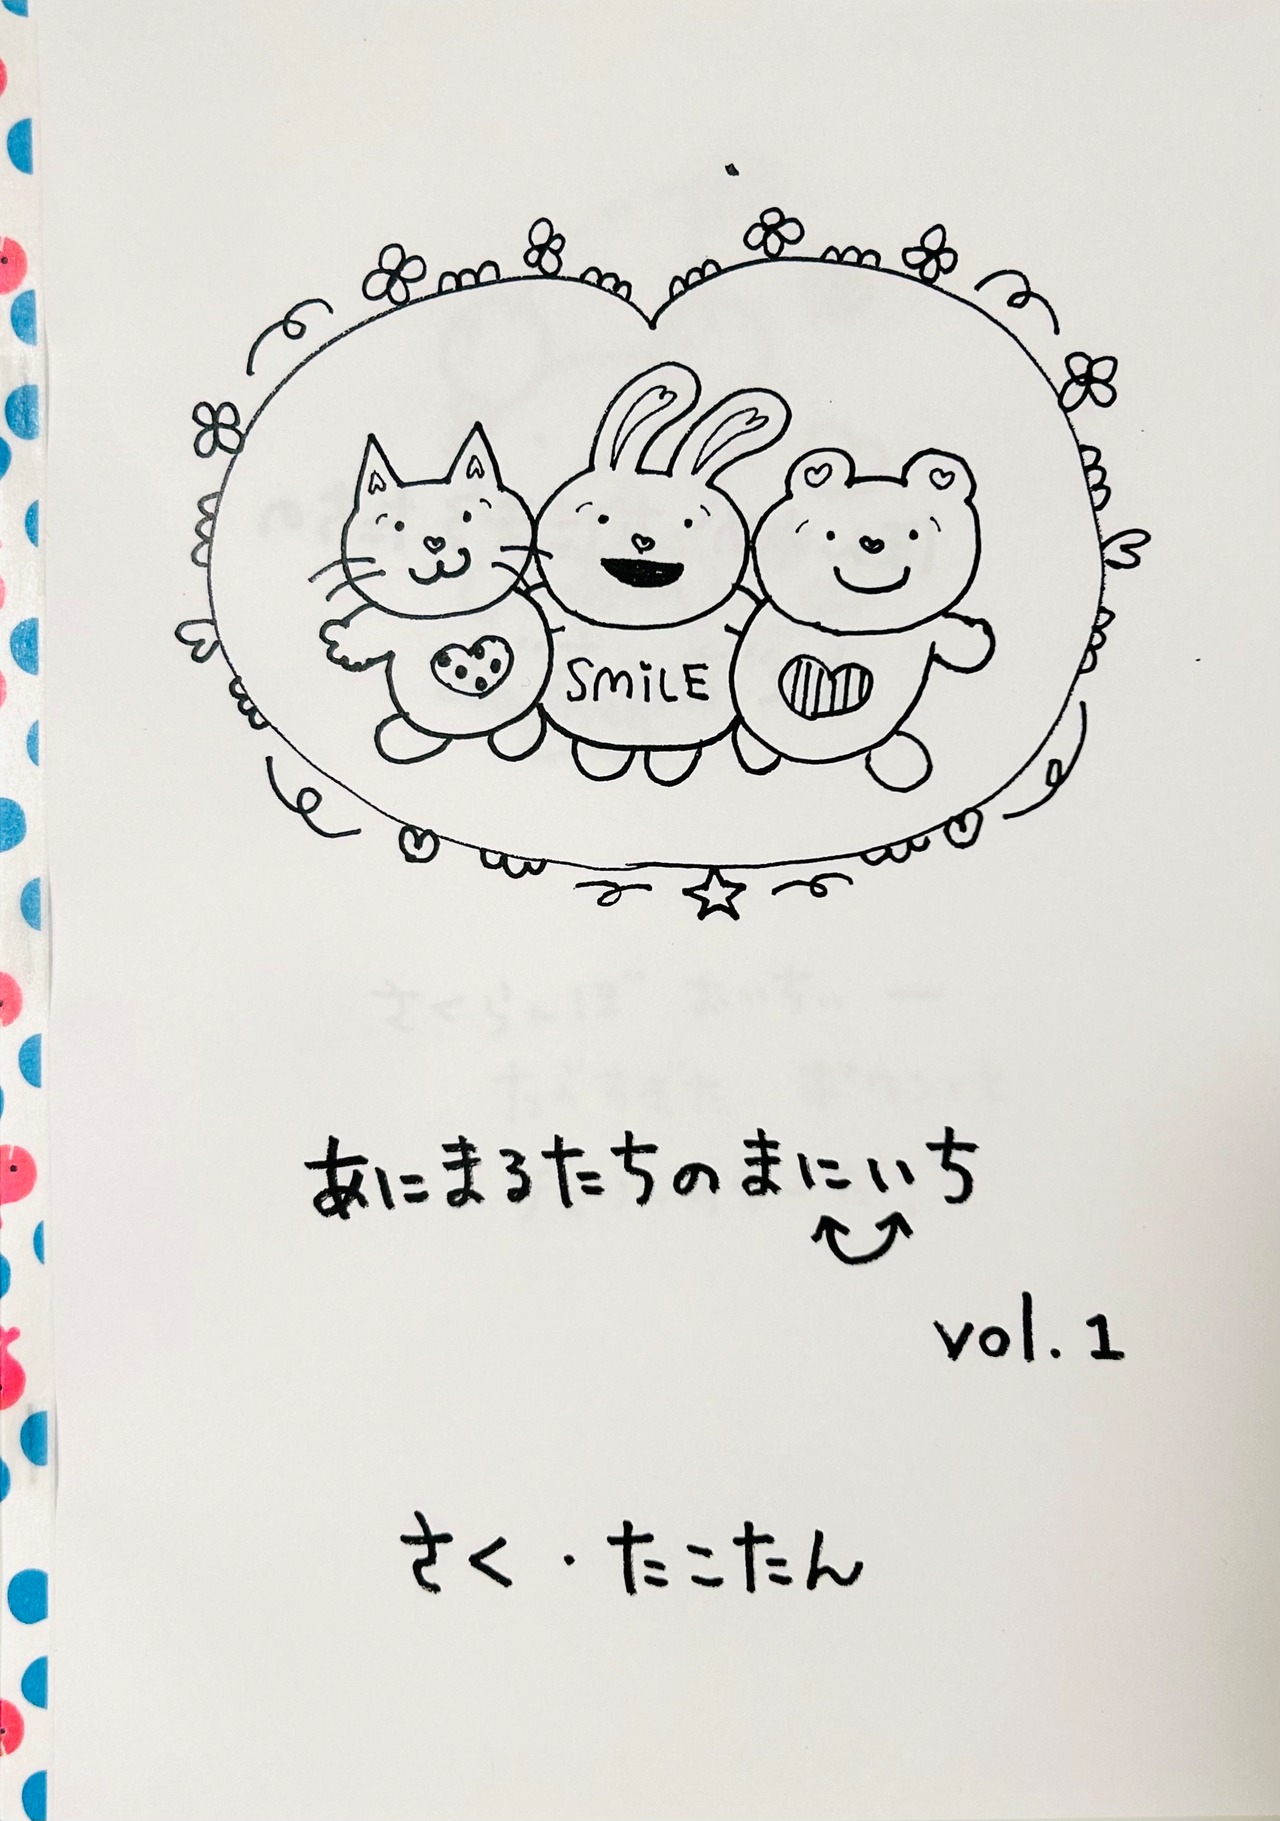 SMiLE
あにまるたちのまにいち
vol.1
さく・たこたん